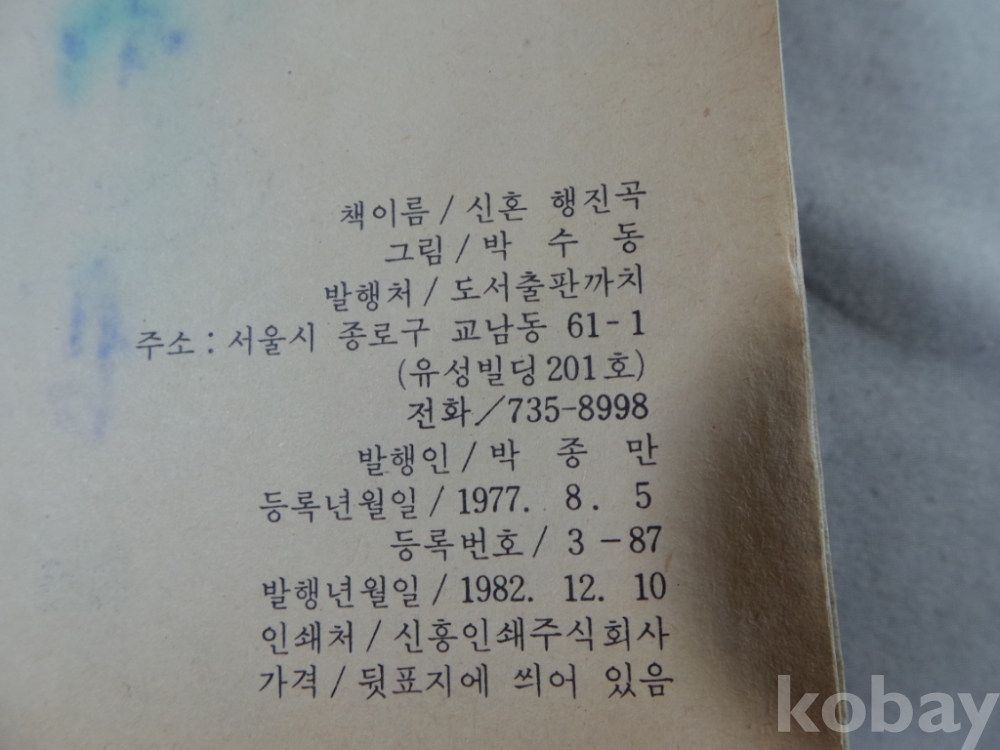 책이름/신혼 행진곡
그림/박 수 동
발행처/도서출판까치
주소:서울시 종로구 교남동 61-1
(유성빌딩201호)
전화/735-8998
발행인/박 종 만
등록년월일/1977. 8. 5
등록번호/3-87
발행년월일/1982. 12. 10
인쇄처/신흥인쇄주식회사
가격/뒷표지에 씌어 있음
kobay